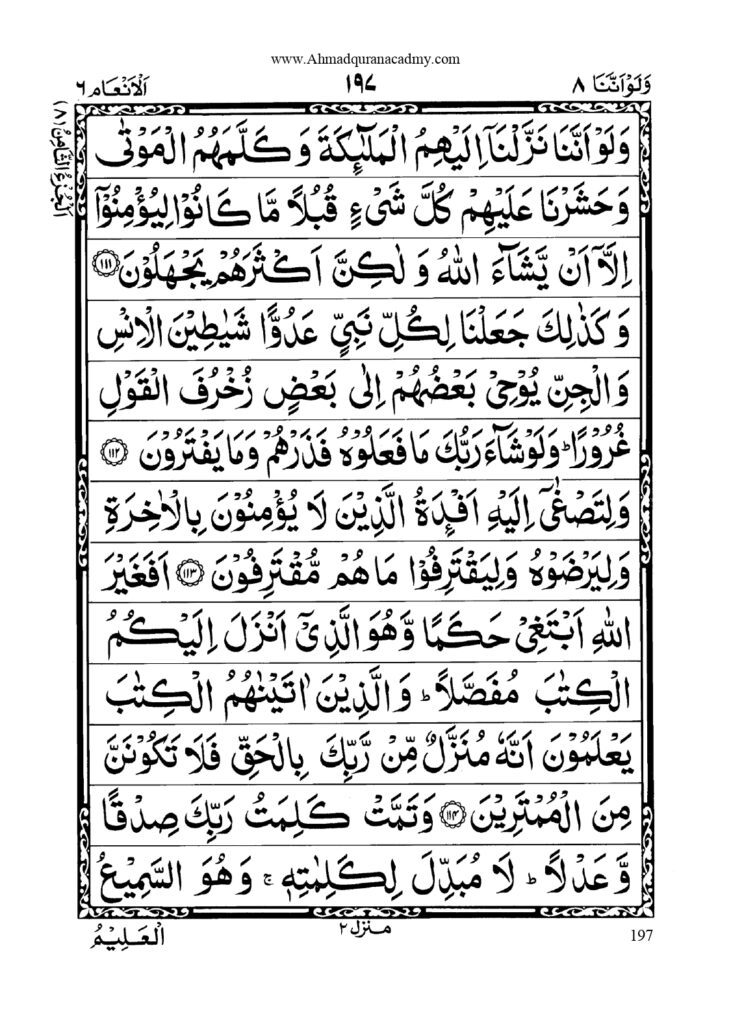 www.Ahmadquranacadmy.com
وَلَوْاَنَّنَا ٨
١٩٧
اَلْاَنْعَام ٦
اَلْجُزْءُ الثَّامِنُ (٨)
وَلَوْ اَنَّنَا نَزَّلْنَاۤ اِلَیْهِمُ الْمَلٰٓئِكَةَ وَ كَلَّمَهُمُ الْمَوْتٰی
وَ حَشَرْنَا عَلَیْهِمْ كُلَّ شَیْءٍ قُبُلًا مَّا كَانُوْا لِیُؤْمِنُوْۤا
اِلَّاۤ اَنْ یَّشَآءَ اللّٰهُ وَ لٰكِنَّ اَكْثَرَهُمْ یَجْهَلُوْنَ ﴿١١١﴾
وَ كَذٰلِكَ جَعَلْنَا لِكُلِّ نَبِیٍّ عَدُوًّا شَیٰطِیْنَ الْاِنْسِ
وَ الْجِنِّ یُوْحِیْ بَعْضُهُمْ اِلٰی بَعْضٍ زُخْرُفَ الْقَوْلِ
غُرُوْرًا ؕ وَ لَوْ شَآءَ رَبُّكَ مَا فَعَلُوْهُ فَذَرْهُمْ وَمَا یَفْتَرُوْنَ ﴿١١٢﴾
وَلِتَصْغٰۤی اِلَیْهِ اَفْـِٕدَةُ الَّذِیْنَ لَا یُؤْمِنُوْنَ بِالْاٰخِرَةِ
وَلِیَرْضَوْهُ وَلِیَقْتَرِفُوْا مَا هُمْ مُّقْتَرِفُوْنَ ﴿١١٣﴾ اَفَغَیْرَ
اللّٰهِ اَبْتَغِیْ حَكَمًا وَّ هُوَ الَّذِیْۤ اَنْزَلَ اِلَیْكُمُ
الْكِتٰبَ مُفَصَّلًا ؕ وَ الَّذِیْنَ اٰتَیْنٰهُمُ الْكِتٰبَ
یَعْلَمُوْنَ اَنَّهٗ مُنَزَّلٌ مِّنْ رَّبِّكَ بِالْحَقِّ فَلَا تَكُوْنَنَّ
مِنَ الْمُمْتَرِیْنَ ﴿١١٤﴾ وَتَمَّتْ كَلِمَتُ رَبِّكَ صِدْقًا
وَّ عَدْلًا ؕ لَا مُبَدِّلَ لِكَلِمٰتِهٖ ۚ وَ هُوَ السَّمِیْعُ
الْعَلِیْمُ
منزل ٢
197